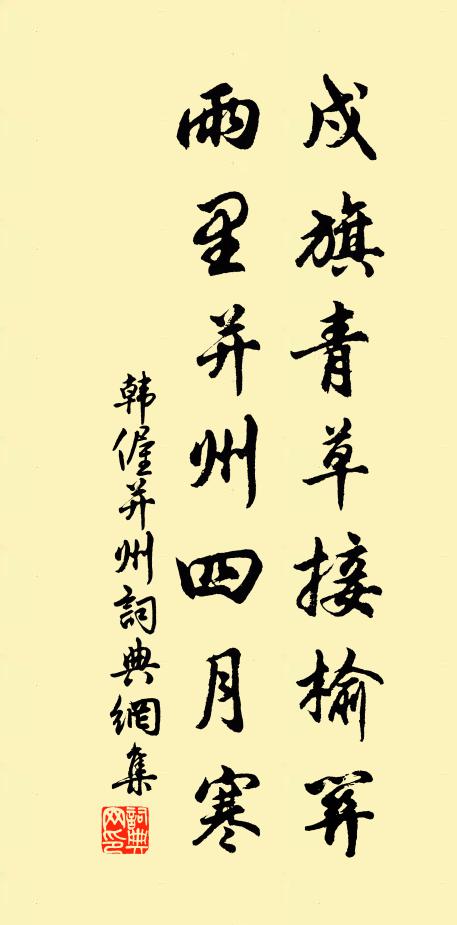 戍旗青草接榆關
雨里并州四月寒
韩偓并州詞典網集
詞典网印